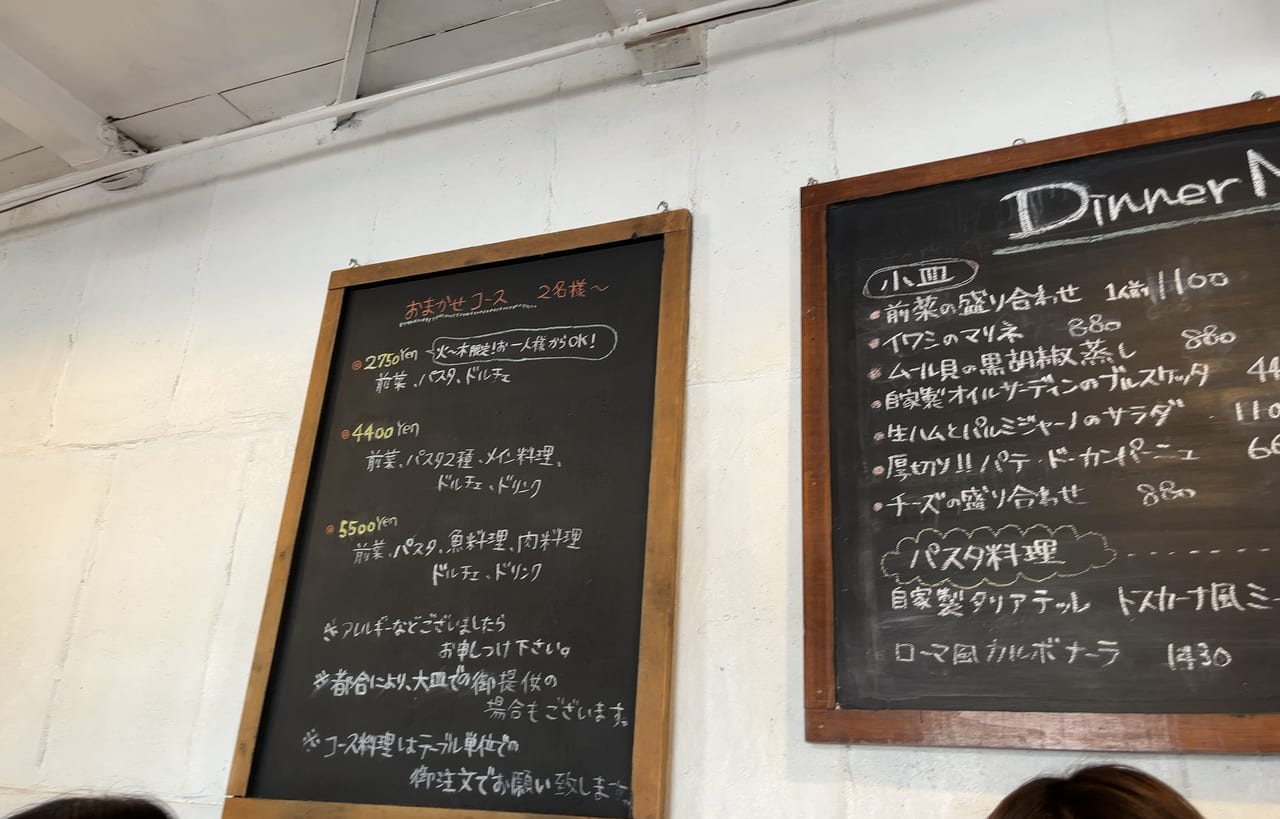 おまかせコース 2名様〜
2750Yen 火〜木限定!お一人様からOK!
前菜、パスタ、ドルチェ
4400Yen
前菜、パスタ2種、メイン料理、
ドルチェ、ドリンク
5500Yen
前菜、パスタ、魚料理、肉料理
ドルチェ、ドリンク
※アレルギーなどございましたら
お申しつけ下さい。
※都合により、大皿での御提供の
場合もございます。
※コース料理はテーブル単位での
御注文でお願い致します。
Dinner
小皿
前菜の盛り合わせ 1人前 1100
イワシのマリネ 880
ムール貝の黒胡椒蒸し 880
自家製オイルサーディンのブルスケッタ 44
生ハムとパルミジャーノのサラダ 110
厚切り!!パテ・ド・カンパーニュ 66
チーズの盛り合わせ 880
パスタ料理
自家製タリアテッレ トスカーナ風ミー
ローマ風カルボナーラ 1430